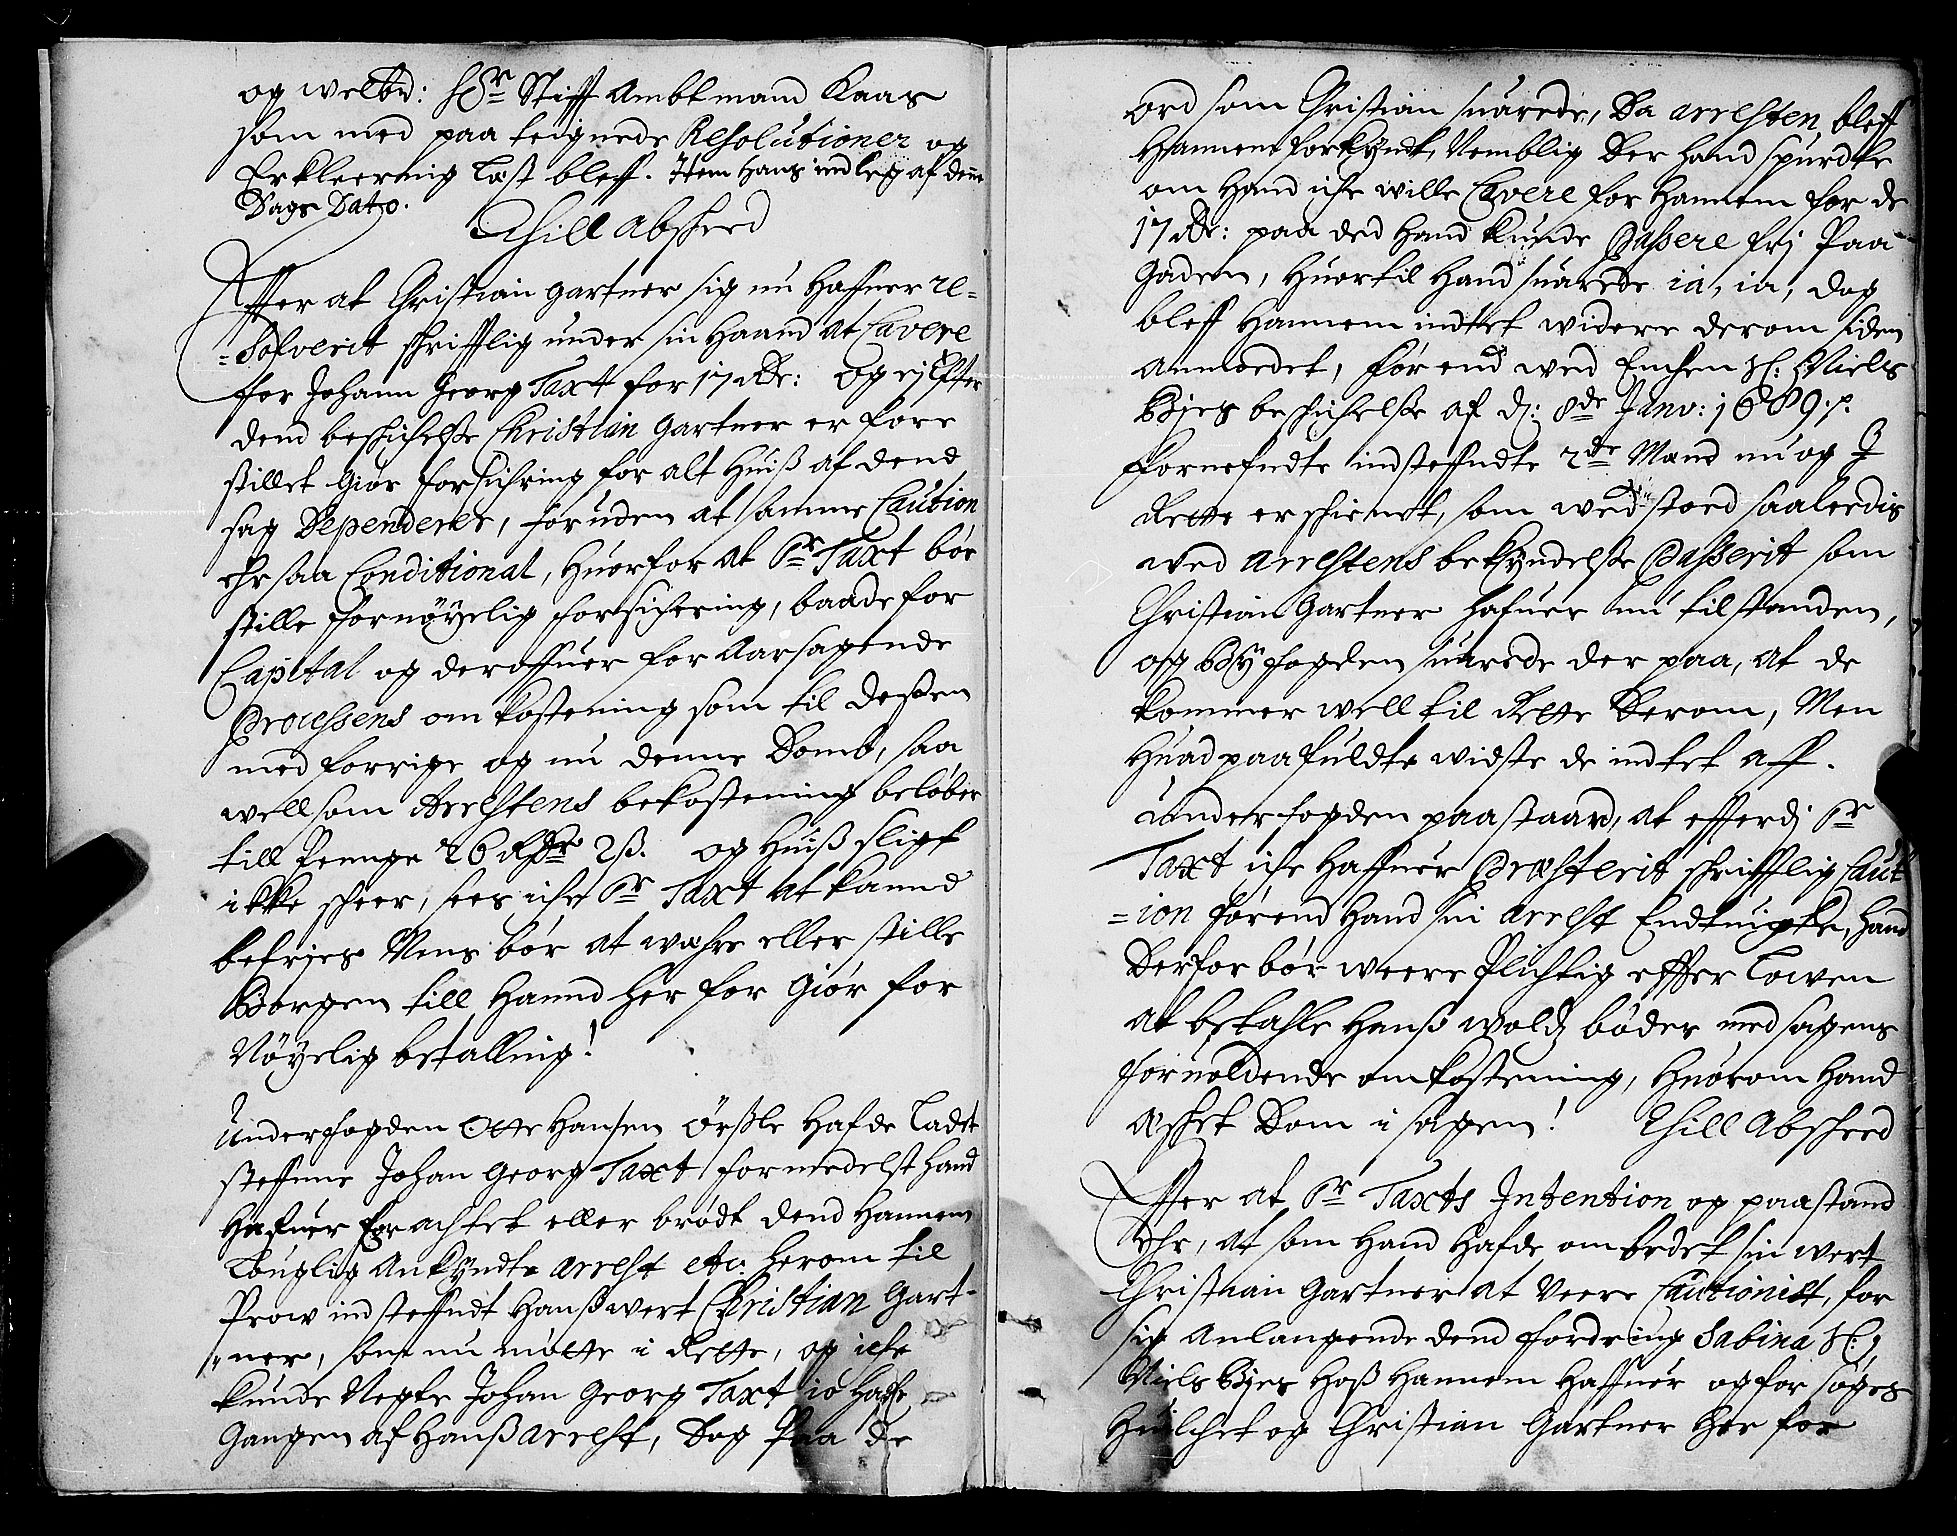 og welbd: H Hr Stifft Ambtmand Kaas
som med paa teignede Resolutioner og
Erkleering læst bleff. Item Hans indleg af denne
Dags Dato.
Thill Absheed
Effter at Christian Gartner sig nu Hafuer re-
=Solverit schrifftlig under sin Haand at Cavere
for Johann Georg Taxt for 17 Rdr: og ej efter
dend beschichelse Christian Gartner er fore
stillet Giør forsichring for alt Huiß af dend
sag Dependerer, foruden at samme Caution
ehr saa Conditional, Huorfor at Sr Taxt bør
stille fornøyelig forsichering, baade for
Capital og deroffuer for Aarsagende
Processens omkostening som til dessen
med forrige og nu denne Domb, saa
well som Arrestens bekostening beløber
till Penge 26 Rdr 2 ß. og Huiß sligt
ikke scheer, sees iche Sr Taxt at kannd
befries Mens bør at wahre eller stille
Borgen till Hannd her for Giør for
Nøyelig betalling!
Underfogden Otte Hansen Ørßle Hafde ladet
steffnne Johan Georg Taxt formedelst Hand
Hafuer foracktet eller brødt dend Hannem
Louglig Ankyndte Arrest etc: herom til
Prow indsteffndt Hanß wert Christian Gart-
"ner, som nu møtte i Rette, og iche
kunde Negte Johan Georg Taxt io Hafde
Gangen af Hanß Arrest, Dog Paa de
ord som Christian suarede, Da arresten bleff
Hannem forkyndt, Nemblig Der Hand spurdte
om Hand iche wille Cavere for Hannem for de
17 Rdr: paa ded Hand kunde Passere frj Paa
Gaden, Huortil Hand suarede ia, ia, dog
bleff Hannem indtet widere derom siden
anmodet, før end wed Enchen Sl: Niels
Byes beschichelse af d: 8de Janv: 1689. p.
Fornefndte indsteffndte 2de Mænd nu og I
Rette erschienet, som wedstoed saaledis
wed arrestens bekyndelse Passerit som
Christian Gartner Hafuer nu tilstanden,
og Byfogden suarede der paa, at de
kommer well til Rette Derom, Men
Huad paafuldte widste de indtet aff.
Underfogden paastaard, at efferdj Sr
Taxt iche Haffuer Præsterit schrifftlig Caut
=ion førend Hand sin Arrest Endtuigte, Hand
Derfor bør weere Plichtig effter Lowen
at betahle Hanß wolds bøder med sagens
foruoldende omkostening, Huorom Hand
æschet Dom i sagen! Thill Absheed
Effter at Sr Taxts Intention og paastand
Ehr, at som Hand Hafde ombedet sin wert
Christian Gartner at Veere Cautionist, for
sig Anlangende dend fordring Sabina Sl:
Niels Byes Hoß Hannem Haffuer og forsøges
Huilchet og Christian Gartner Her for